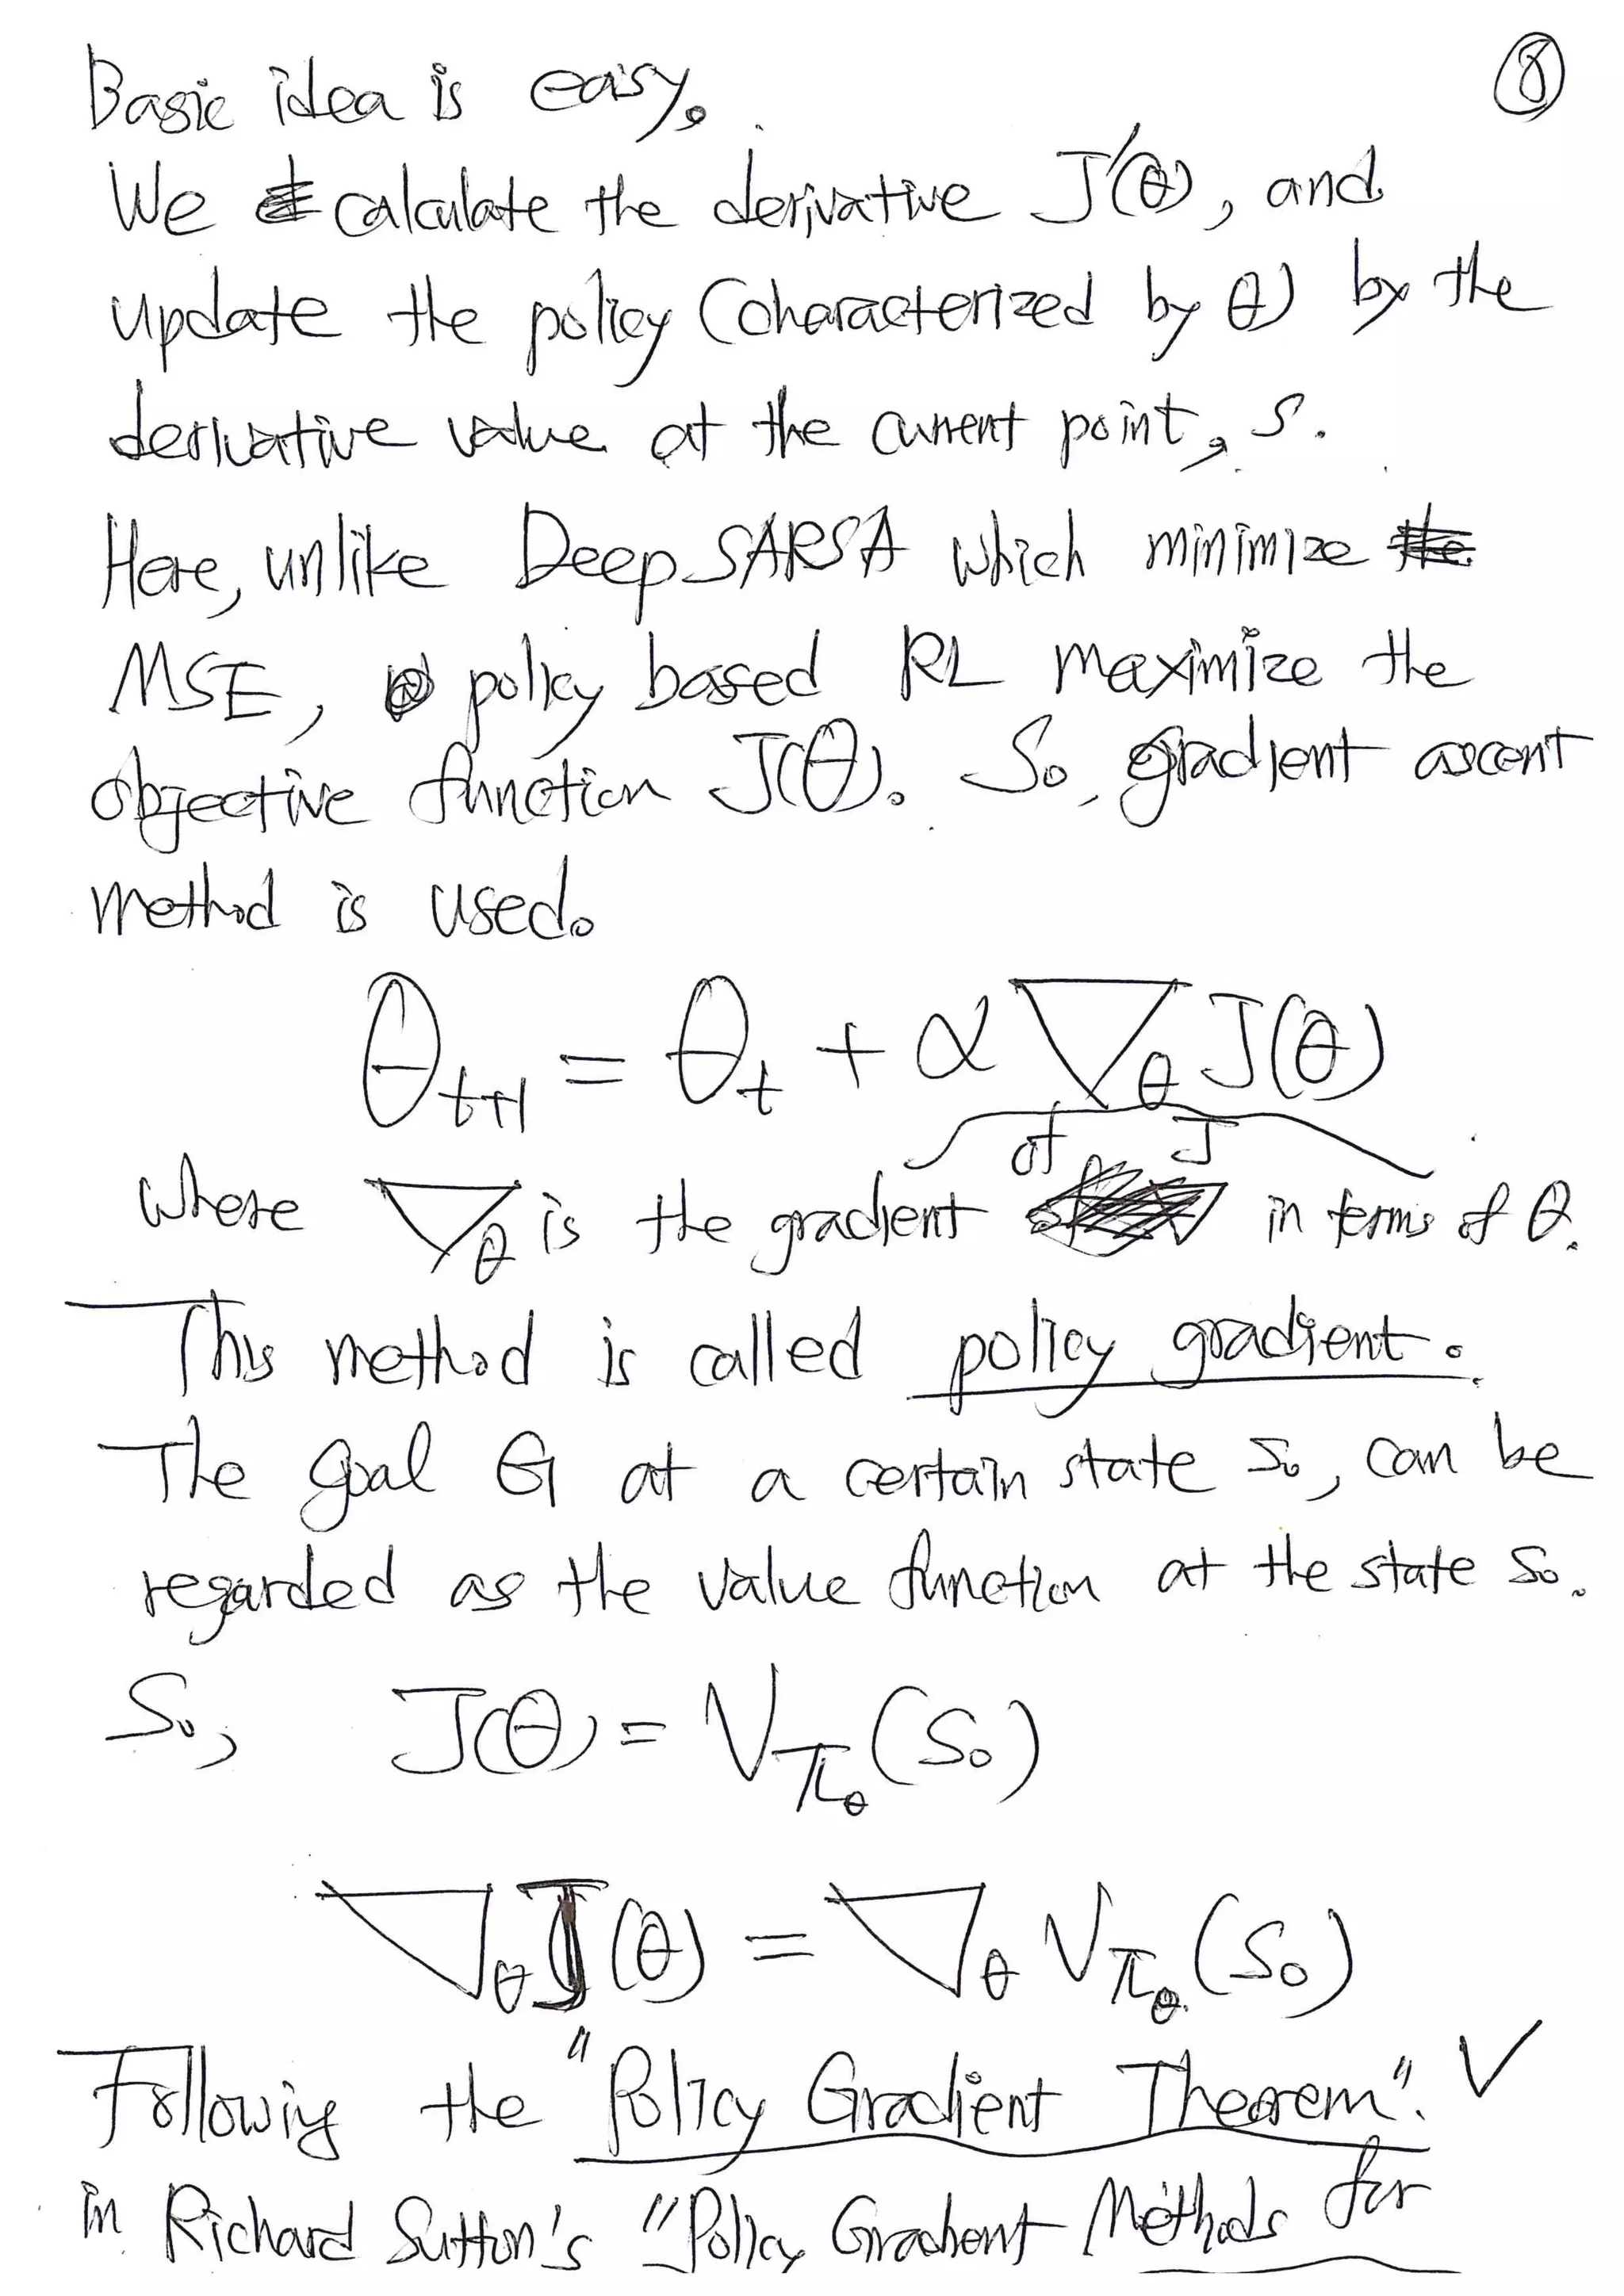 Basic idea is easy. ⑧
We calculate the derivative J'(θ), and
update the policy (characterized by θ) by the
derivative value at the current point, s.
Here, unlike Deep SARSA which minimize the
MSE, policy based RL maximize the
objective function J(θ). So, gradient ascent
method is used.
θt+1 = θt + α ∇θ J(θ)
of J
where ∇θ is the gradient in terms of θ.
This method is called policy gradient.
The goal G at a certain state s₀, can be
regarded as the value function at the state s₀.
So, J(θ) = Vπθ(s₀)
∇θJ(θ) = ∇θ Vπθ(s₀)
Following the "Policy Gradient Theorem". ✓
in Richard Sutton's "Policy Gradient Methods for